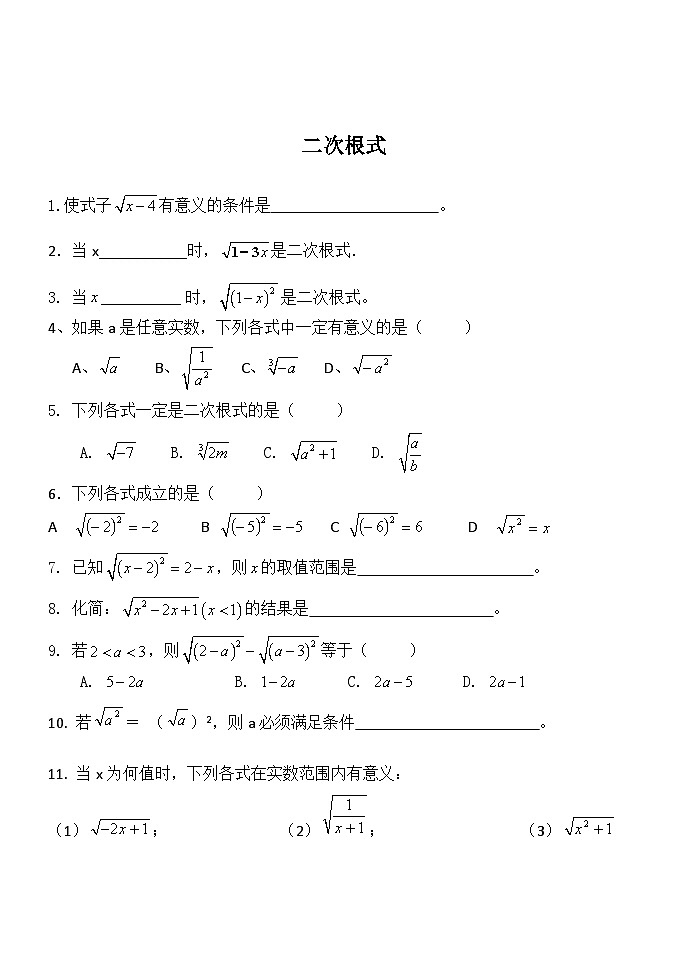 二次根式
1.使式子√(x−4)有意义的条件是____________________。
2. 当x___________时，√(1−3x)是二次根式.
3. 当x__________时，√((1−x)²)是二次根式。
4、如果a是任意实数，下列各式中一定有意义的是（    ）
A、√a    B、√(1/a²)    C、∛(−a)    D、√(−a²)
5. 下列各式一定是二次根式的是（    ）
A. √(−7)    B. ∛(2m)    C. √(a²+1)    D. √(a/b)
6. 下列各式成立的是（    ）
A √((−2)²)=−2    B √((−5)²)=−5    C √((−6)²)=6    D √(x²)=x
7. 已知√((x−2)²)=2−x，则x的取值范围是______________________。
8. 化简：√(x²−2x+1)(x<1)的结果是_______________________。
9. 若2<a<3，则√((2−a)²)−√((a−3)²)等于（    ）
A. 5−2a    B. 1−2a    C. 2a−5    D. 2a−1
10. 若√(a²)=（√a）²，则a必须满足条件_______________________。
11. 当x为何值时，下列各式在实数范围内有意义：
（1）√(−2x+1)；    （2）√(1/(x+1))；    （3）√(x²+1)